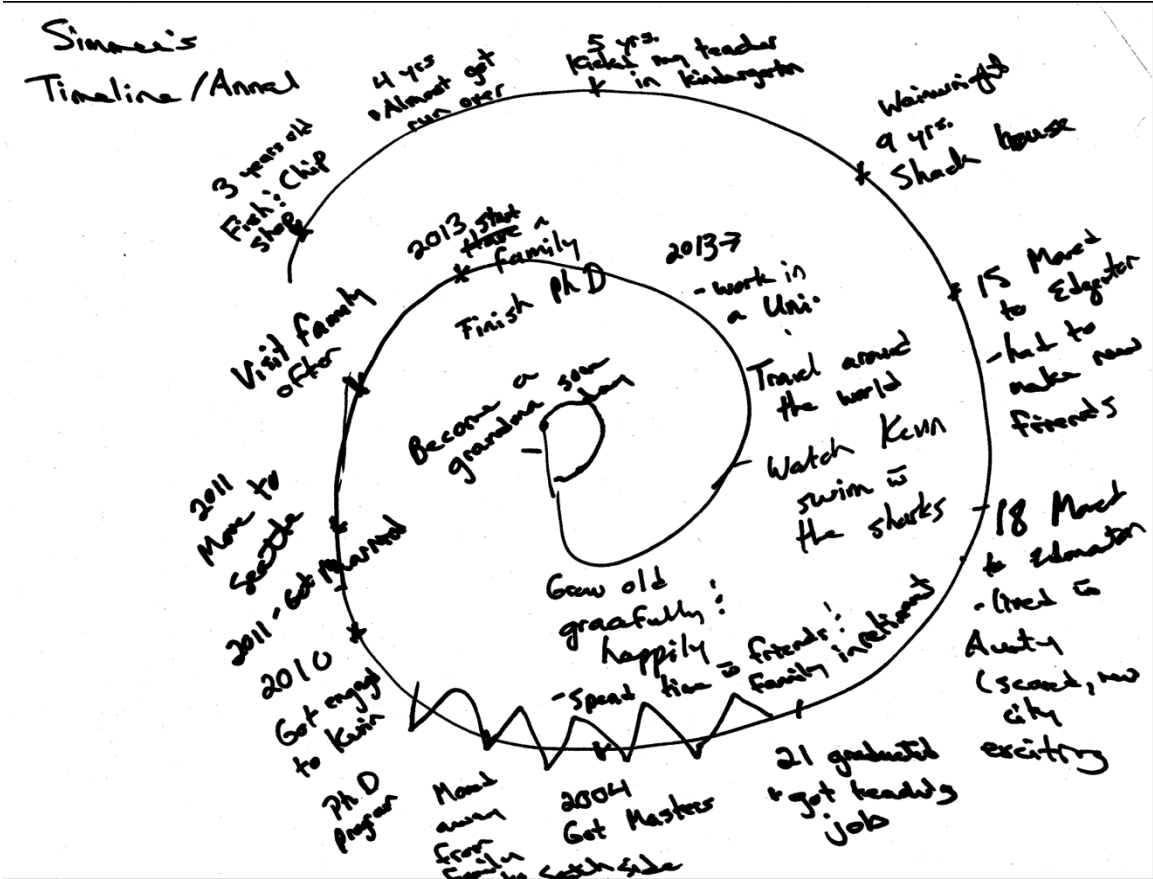 Simmee's
Timeline/Annal
3 years old
Fish & Chip
shop
4 yrs
Almost got
run over
5 yrs.
Kicked my teacher
in kindergarten
Wainwright
9 yrs.
Shack house
15 Moved
to Edgerton
-had to
make new
friends
18 Moved
to Edmonton
-lived w
Aunty
(scared, new
city
exciting
21 graduated
+ got teaching
job
2004
Got Masters
Moved
away
from
Family
to South side
Ph.D
program
2010
Got engaged
to Kevin
2011 - Got Married
2011
Move to
Seattle
Visit family
often
2013 start
Have a
family
Finish Ph D
2013→
-work in
a Uni.
Travel around
the world
Watch Kevin
swim w
the sharks
Grow old
gracefully &
happily
-spend time w friends &
family in retirement
Become a
grandma some
day